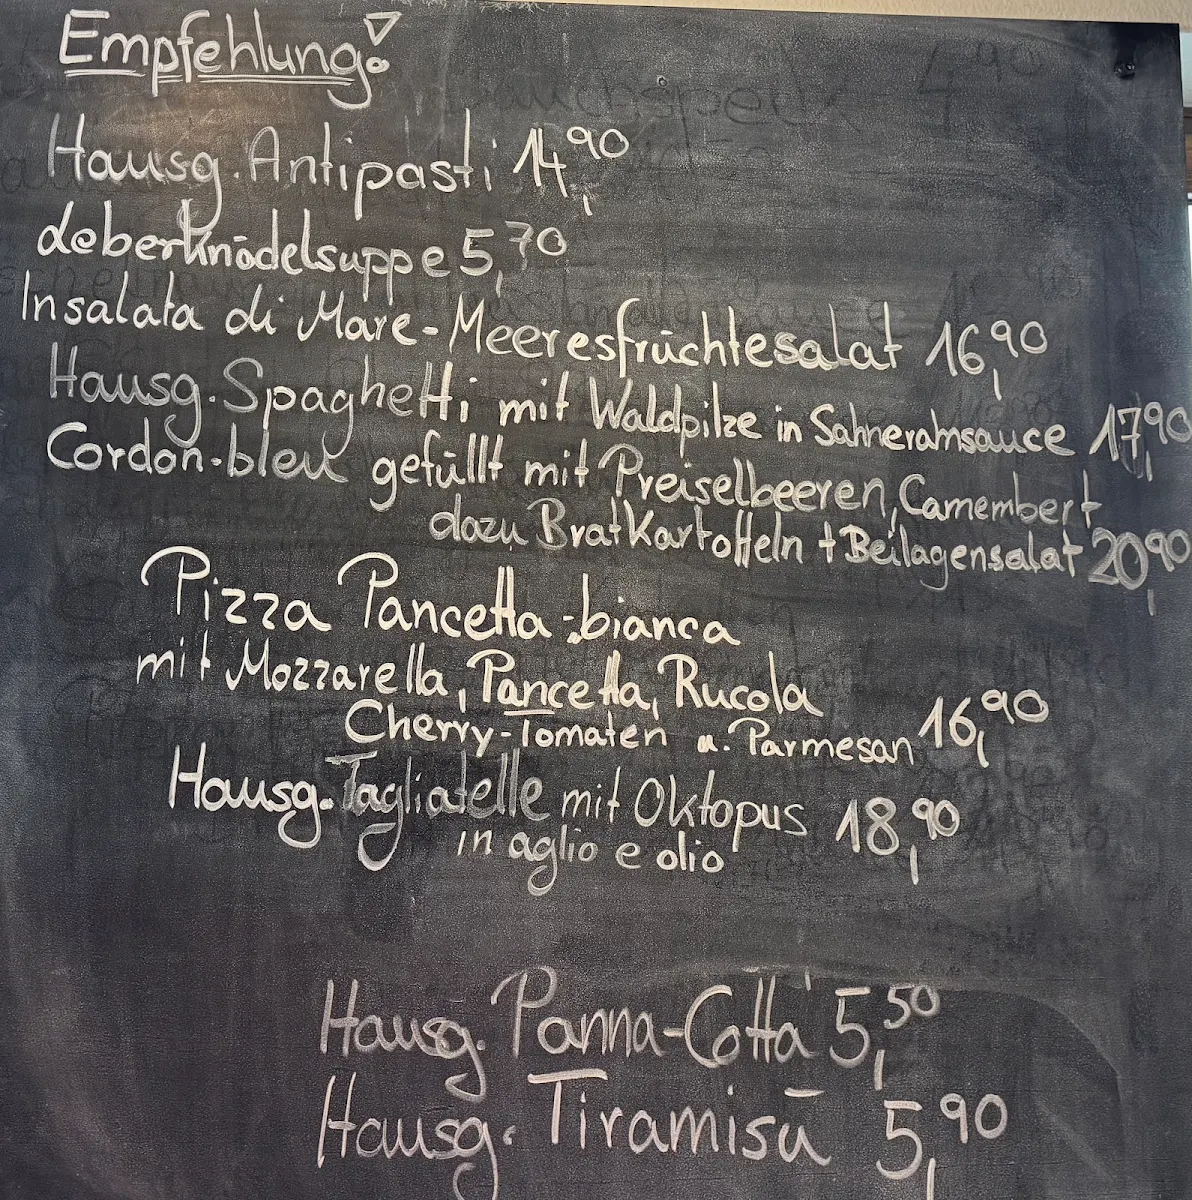 Empfehlung!
Hausg. Antipasti 14,90
Leberknödelsuppe 5,70
Insalata di Mare-Meeresfrüchtesalat 16,90
Hausg. Spaghetti mit Waldpilze in Sahnerahmsauce 17,90
Cordon-bleu gefüllt mit Preiselbeeren, Camembert
dazu Bratkartoffeln + Beilagensalat 20,90
Pizza Pancetta-bianca
mit Mozzarella, Pancetta, Rucola
Cherry-Tomaten u. Parmesan 16,90
Hausg. Tagliatelle mit Oktopus 18,90
in aglio e olio
Hausg. Panna-Cotta 5,50
Hausg. Tiramisū 5,90